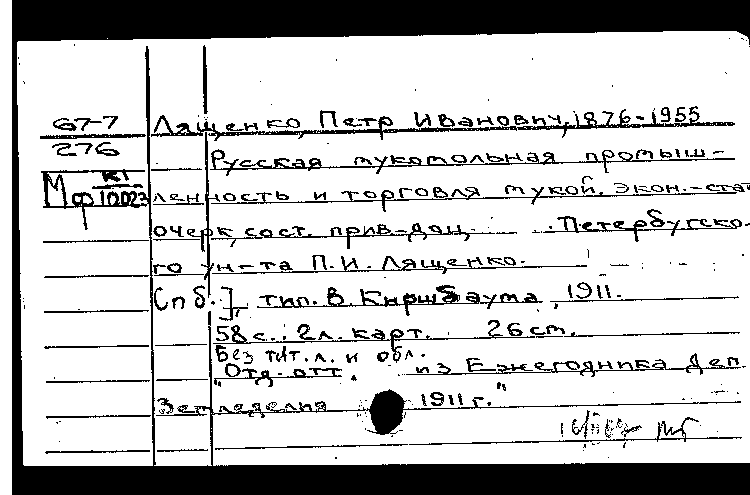 67-7
276
Мф К1 10023
Лященко, Петр Иванович, 1876-1955
Русская мукомольная промыш-
ленность и торговля мукой. Экон.-стат
очерк, сост. прив-доц. Петербургско-
го ун-та П.И. Лященко.
Спб.], тип. В. Киршбаума, 1911.
58 с., 2 л. карт. 26 cm.
Без тит. л. и обл.
"Отд. отт. из Ежегодника Деп
Земледелия 1911 г."